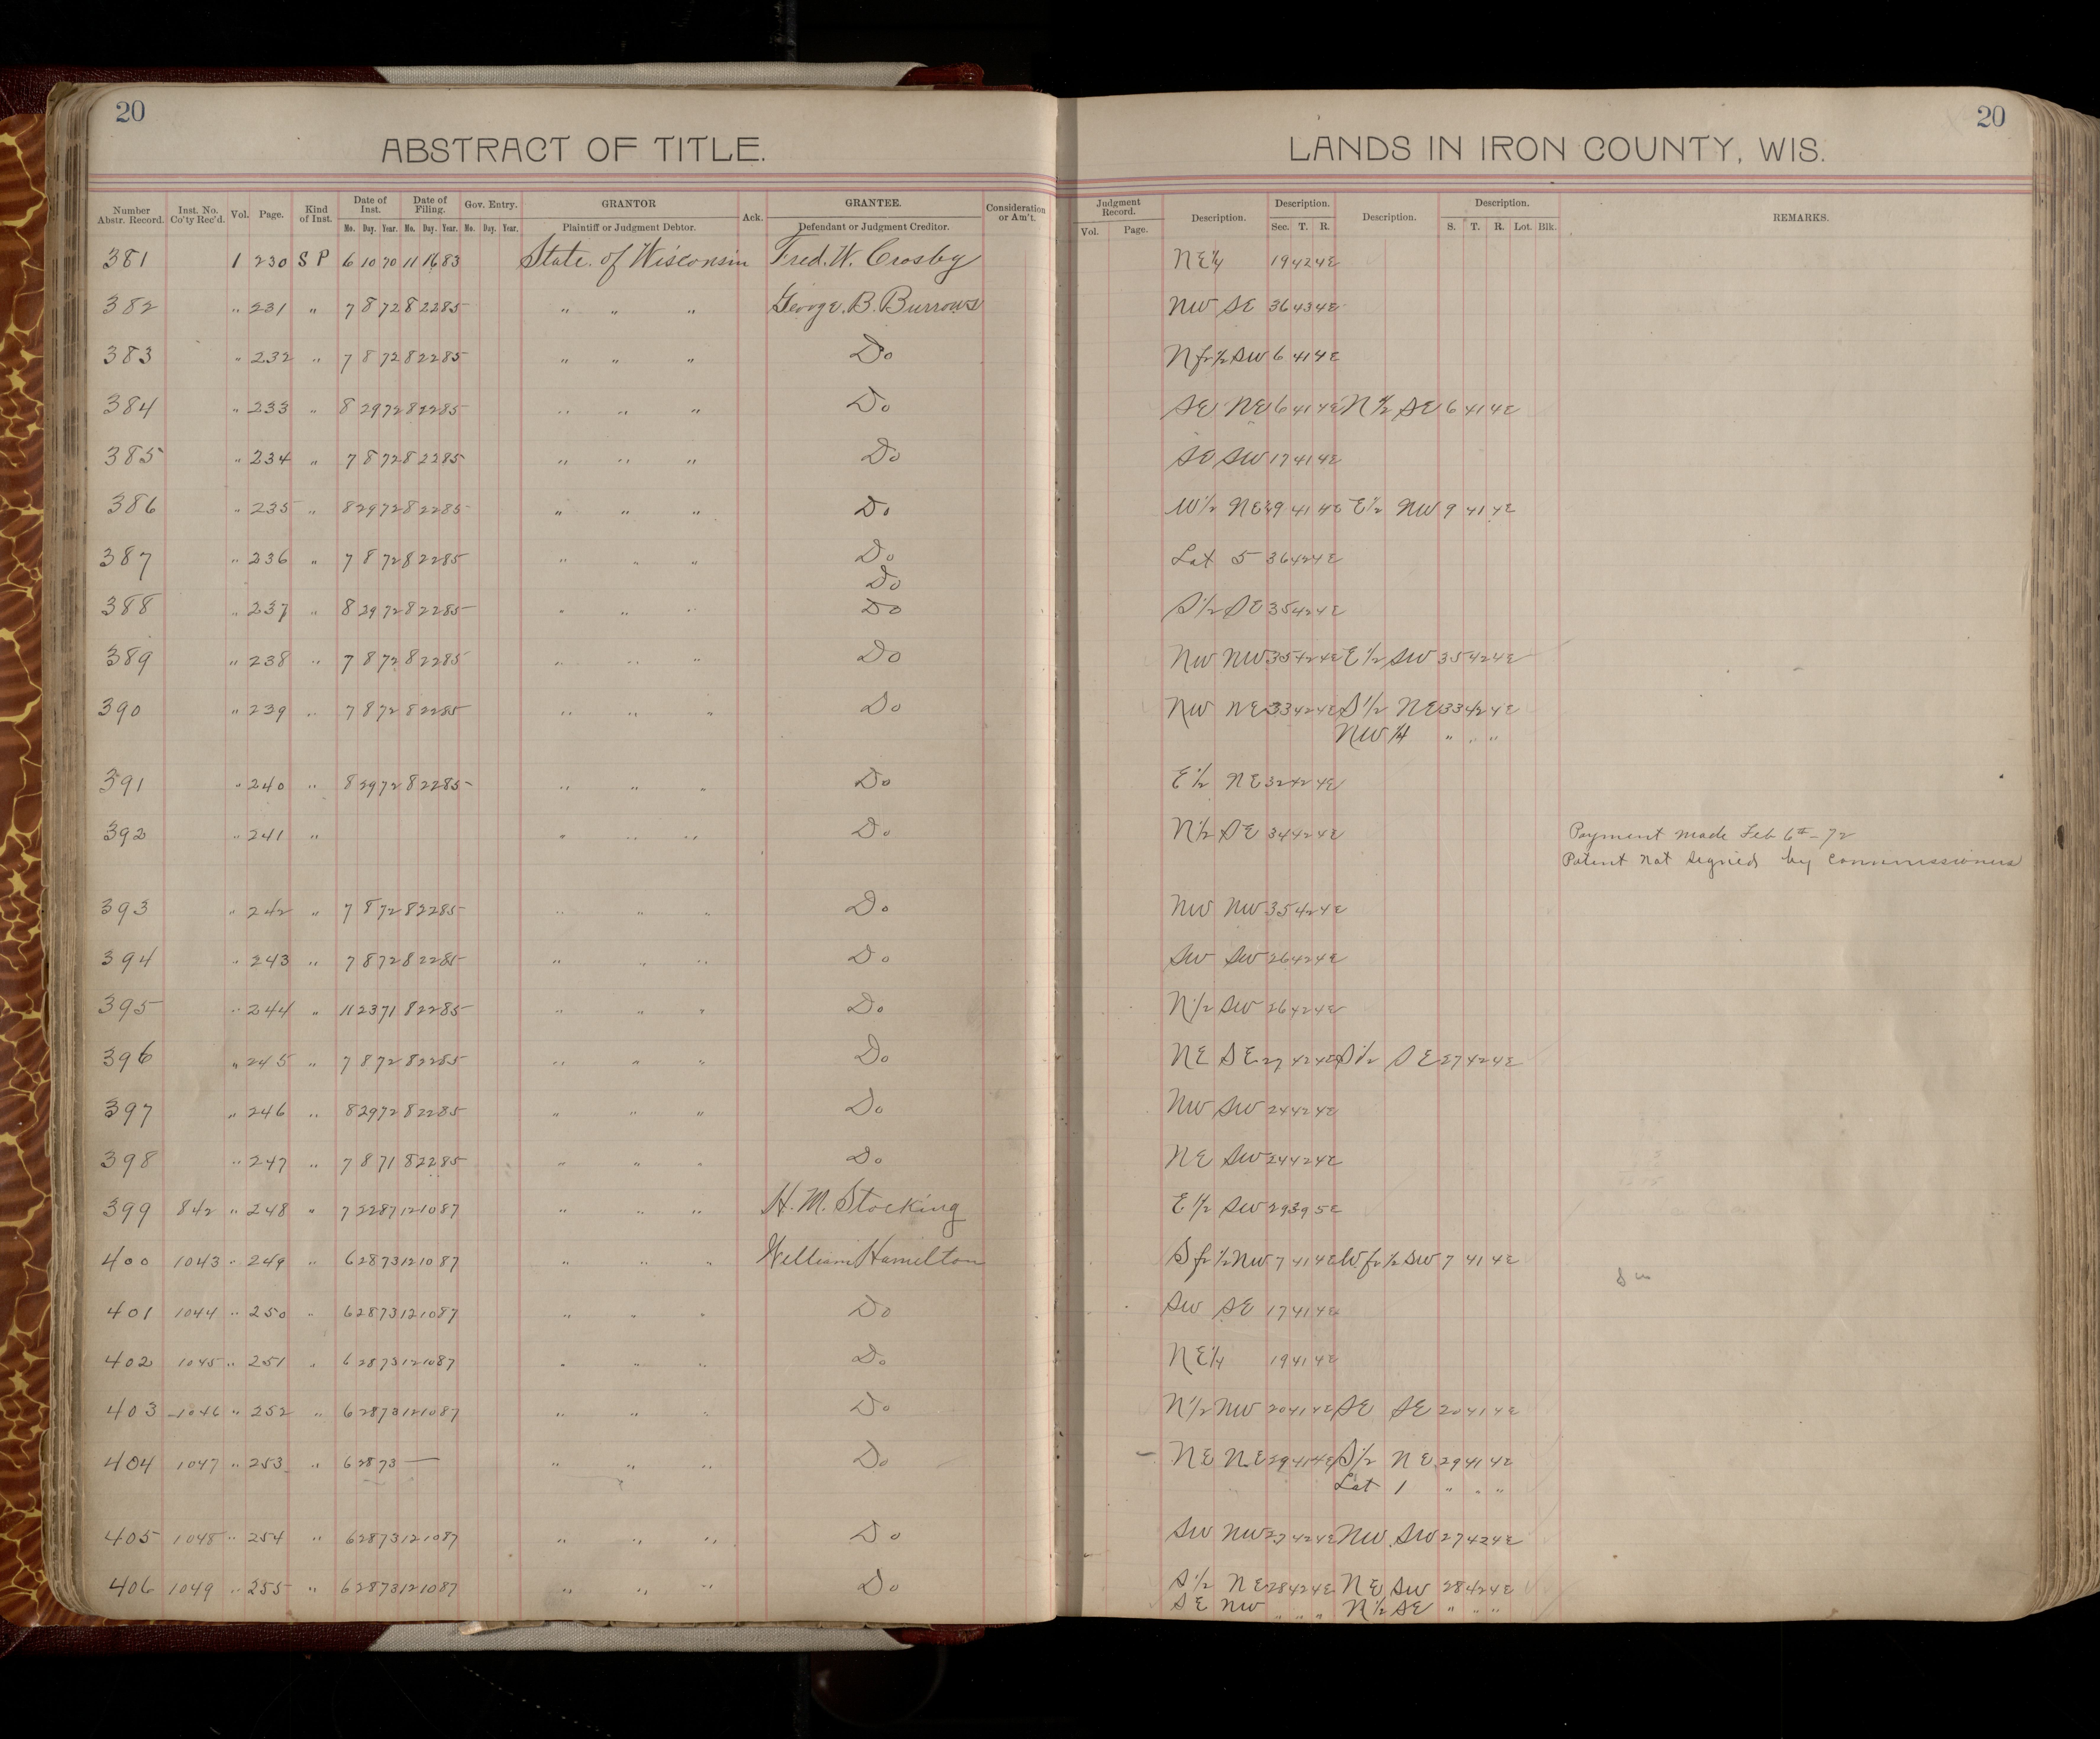 20
ABSTRACT OF TITLE.
Number Abstr. Record. Inst. No. Co'ty Rec'd. Vol. Page. Kind of Inst. Date of Inst. Mo. Day. Year. Date of Filing. Mo. Day. Year. Gov. Entry. Mo. Day. Year. GRANTOR Plaintiff or Judgment Debtor. Ack. GRANTEE. Defendant or Judgment Creditor. Consideration or Am't.
381 1 230 S P 6 10 70 11 16 83 State of Wisconsin Fred. W. Crosby
382 " 231 " 7 8 72 8 22 85 " " " George. B. Burrows
383 " 232 " 7 8 72 8 22 85 " " " Do
384 " 233 " 8 29 72 8 22 85 " " " Do
385 " 234 " 7 8 72 8 22 85 " " " Do
386 " 235 " 8 29 72 8 22 85 " " " Do
387 " 236 " 7 8 72 8 22 85 " " " Do
Do
388 " 237 " 8 29 72 8 22 85 " " " Do
389 " 238 " 7 8 72 8 22 85 " " " Do
390 " 239 " 7 8 72 8 22 85 " " " Do
391 " 240 " 8 29 72 8 22 85 " " " Do
392 " 241 " " " " Do
393 " 242 " 7 8 72 8 22 85 " " " Do
394 " 243 " 7 8 72 8 22 85 " " " Do
395 " 244 " 11 23 71 8 22 85 " " " Do
396 " 245 " 7 8 72 8 22 85 " " " Do
397 " 246 " 8 29 72 8 22 85 " " " Do
398 " 247 " 7 8 71 8 22 85 " " " Do
399 842 " 248 " 7 22 87 12 10 87 " " " H. M. Stocking
400 1043 " 249 " 6 28 73 12 10 87 " " " William Hamilton
401 1044 " 250 " 6 28 73 12 10 87 " " " Do
402 1045 " 251 " 6 28 73 12 10 87 " " " Do
403 1046 " 252 " 6 28 73 12 10 87 " " " Do
404 1047 " 253 " 6 28 73 — " " " Do
405 1048 " 254 " 6 28 73 12 10 87 " " " Do
406 1049 " 255 " 6 28 73 12 10 87 " " " Do
20
LANDS IN IRON COUNTY, WIS.
Judgment Record. Vol. Page. Description. Description. Sec. T. R. Description. Description. S. T. R. Lot. Blk. REMARKS.
NE 1/4 19 42 4E
NW SE 36 43 4E
N fr 1/2 SW 6 41 4E
SE NE 6 41 4E N 1/2 SE 6 41 4E
SE SW 17 41 4E
W 1/2 NE 9 41 4E E 1/2 NW 9 41 4E
Lot 5 36 42 4E
S 1/2 SE 35 42 4E
NW NW 35 42 4E E 1/2 SW 35 42 4E
NW NE 33 42 4E S 1/2 NE 33 42 4E
NW 1/4 " " "
E 1/2 NE 32 42 4E
N 1/2 SE 34 42 4E Payment made Feb 6th - 72
Patent not signed by Commissioners
NW NW 35 42 4E
SW SW 26 42 4E
N 1/2 SW 26 42 4E
NE SE 27 42 4E S 1/2 SE 27 42 4E
NW SW 24 42 4E
NE SW 24 42 4E
E 1/2 SW 29 39 5E
S fr 1/2 NW 7 41 4E W fr 1/2 SW 7 41 4E
SW SE 17 41 4E
NE 1/4 19 41 4E
N 1/2 NW 20 41 4E SE SE 20 41 4E
NE NE 29 41 4E S 1/2 NE 29 41 4E
Lot 1 " " "
SW NW 27 42 4E NW SW 27 42 4E
S 1/2 NE 28 42 4E NE SW 28 42 4E
SE NW " " " N 1/2 SE " " "